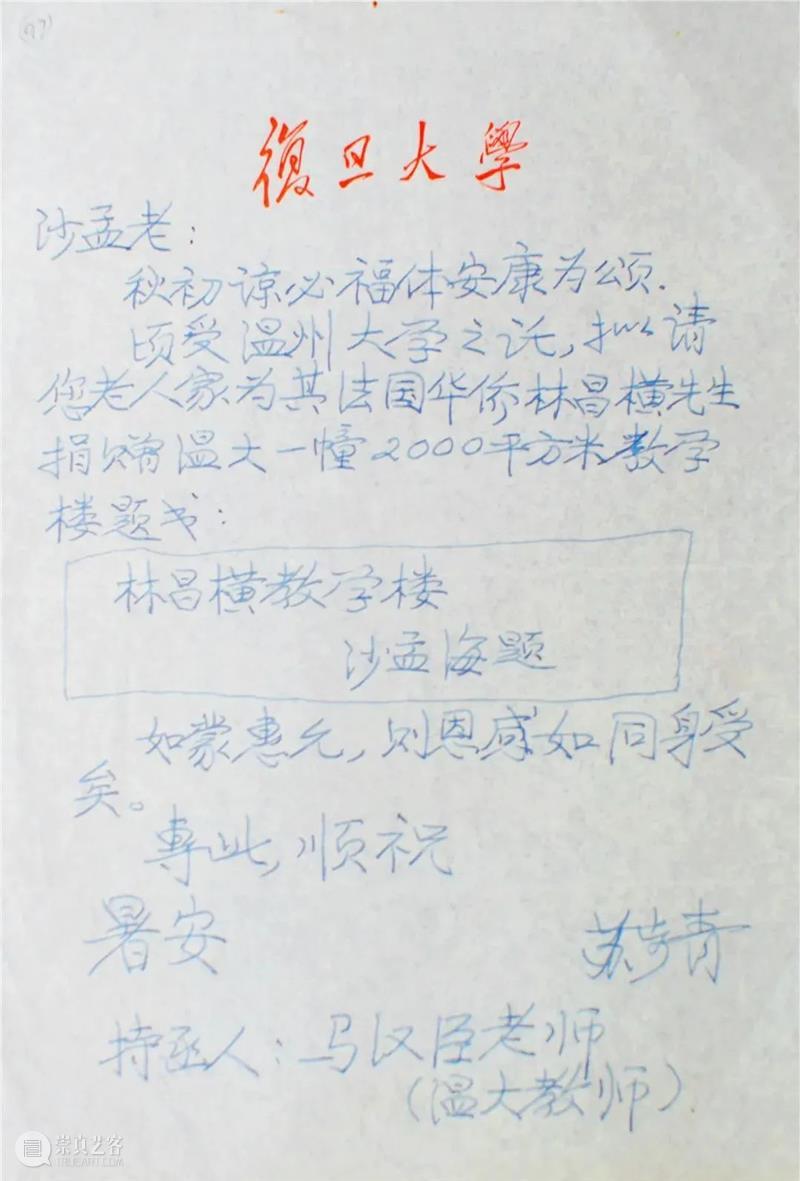 復旦大學
沙孟老：
秋初谅必福体安康为颂.
顷受温州大学之讬，拟请
您老人家为其法国华侨林昌横先生
捐赠温大一幢2000平方米教学
楼题书：
林昌横教学楼
沙孟海题
如蒙惠允，则恩感如同身受
矣。
専此，顺祝
暑安
苏步青
持函人：马汉臣老师
（温大教师）
崇真艺客
TRUEART.COM